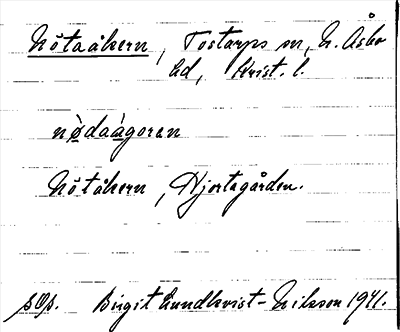 Nötaåkern, Tostarps sn, N. Åsbo
hd, Krist. l.
nø̀daågoren
Nötåkern, Hjortsgården.
Birgit Lundkvist-Nilsson 1941.